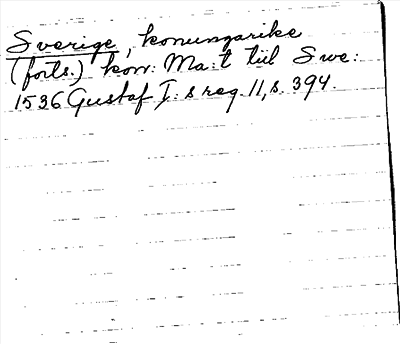 Sverige, konungarike
(forts.) kon: Ma:t till Swe:
1536 Gustaf I:s reg. 11, s. 394.